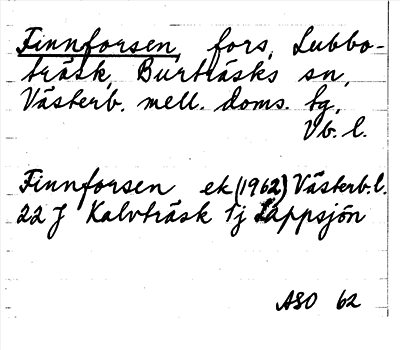 Finnforsen, fors, Lubbo-
träsk, Burträsks sn,
Västerb. mell. doms. tg,
Vb. l.
Finnforsen ek (1962) Västerb. l.
22 J Kalvträsk 1j Lappsjön
ASO 62